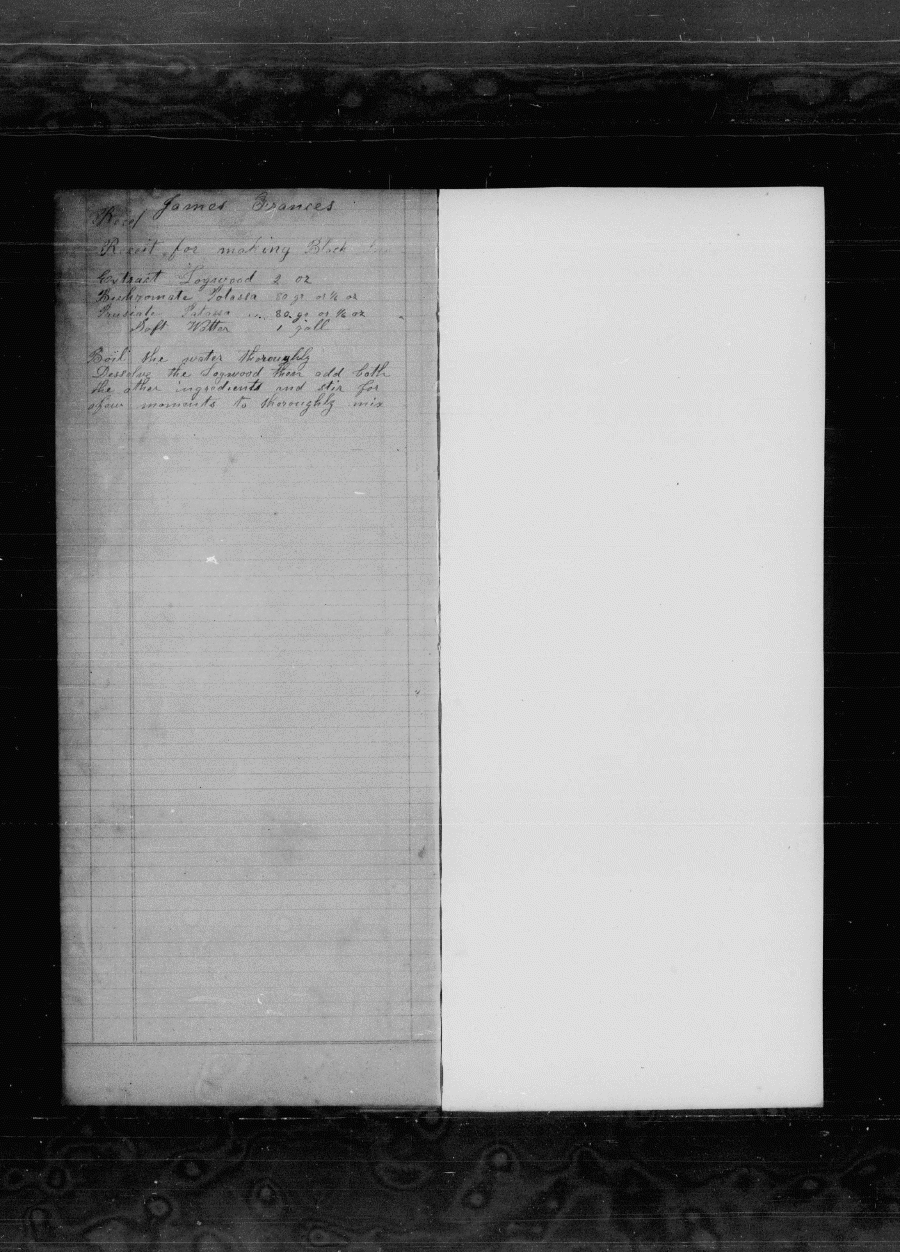 James Frances
Recei
Receit for making Black
Extract Logwood 2 oz
Bichromate Potassa 80 gr or ⅙ oz
Prusiate Potassa .. 80 gr or ⅙ oz
Soft Watter 1 gall
Boil the water thoroughly
Dessolve the Logwood then add both
the other ingredients and stir for
afew moments to thoroughly mix